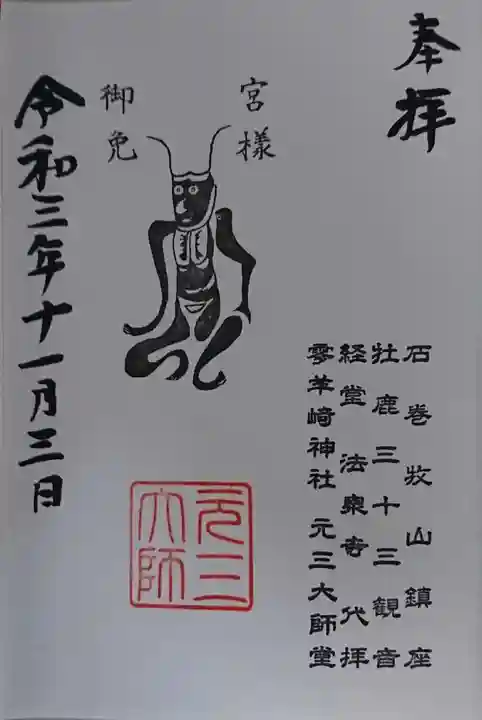 奉拝
石巻牧山鎮座
牡鹿三十三観音
経堂 法泉寺 代拝
零羊崎神社 元三大師堂
宮様
御免
元三
大師
令和三年十一月三日